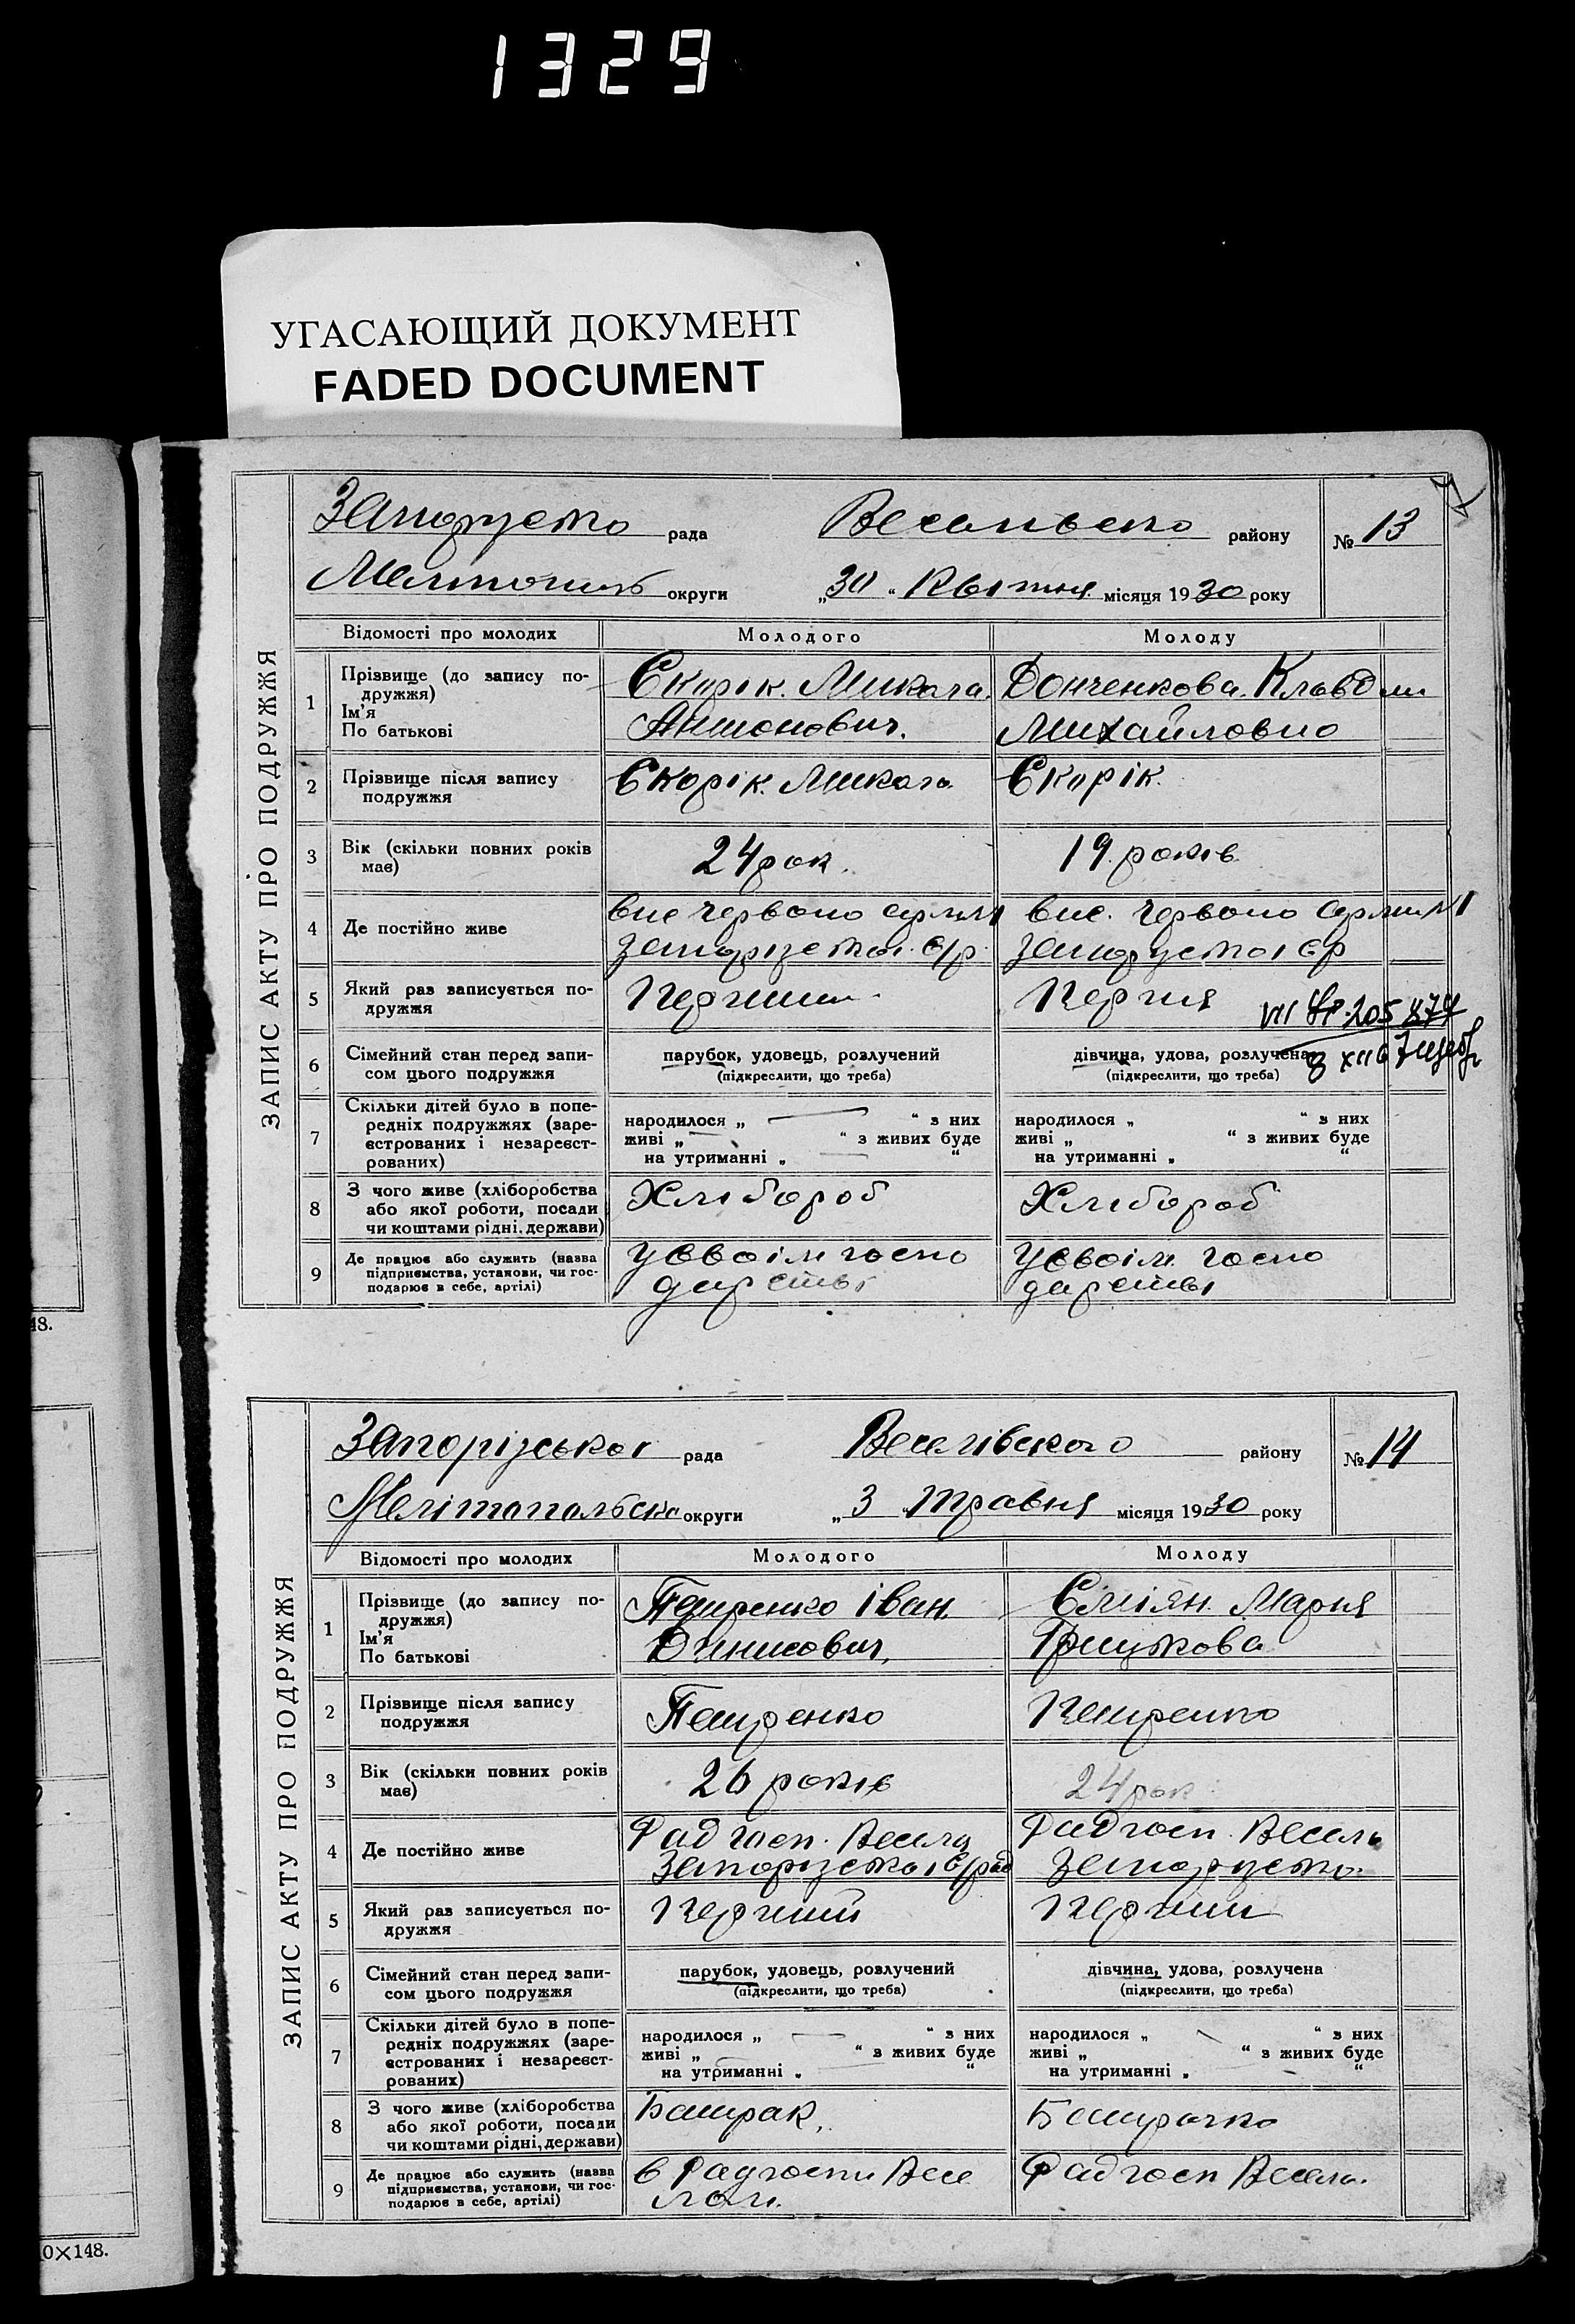 1329
УГАСАЮЩИЙ ДОКУМЕНТ
FADED DOCUMENT
ЗАПИС АКТУ ПРО ПОДРУЖЖЯ
рада
району
№ 13
округи
„30“ Квітня місяця 1930 року
Відомості про молодих
Молодого
Молоду
1
Прізвище (до запису по-
дружжя)
Ім'я
По батькові
Скорік Микола
Антонович.
Донченкова Клавдии
Михайловно
2
Прізвище після запису
подружжя
Скорік Микола
Скорік
3
Вік (скільки повних років
має)
24 рок.
19 років
4
Де постійно живе
вис червоно
вис. червоно
5
Який раз записується по-
дружжя
Перший
Перша
6
Сімейний стан перед запи-
сом цього подружжя
парубок, удовець, розлучений
(підкреслити, що треба)
дівчина, удова, розлучена
(підкреслити, що треба)
7
Скільки дітей було в попе-
редніх подружжях (заре-
єстрованих і незареєст-
рованих)
народилося „ — “ з них
живі „ — “ з живих буде
на утриманні „ — “
народилося „ “ з них
живі „ “ з живих буде
на утриманні „ “
8
З чого живе (хліборобства
або якої роботи, посади
чи коштами рідні, держави)
Хлібороб
Хлібороб
9
Де працює або служить (назва
підприємства, установи, чи гос-
подарює в себе, артілі)
У своім госпо
дарстві
У своім госпо
дарстві
18.
ЗАПИС АКТУ ПРО ПОДРУЖЖЯ
Запорізькоі рада
Веселівського району
№ 14
Мелітопольско округи
„3 Травня місяця 1930 року
Відомості про молодих
Молодого
Молоду
1
Прізвище (до запису по-
дружжя)
Ім'я
По батькові
Петренко Іван
Динисович.
Сміян Мария
Грицькова
2
Прізвище після запису
подружжя
Петренко
Петренко
3
Вік (скільки повних років
має)
26 років
24 рок
4
Де постійно живе
Радгосп.
Радгосп.
5
Який раз записується по-
дружжя
Перший
Перший
6
Сімейний стан перед запи-
сом цього подружжя
парубок, удовець, розлучений
(підкреслити, що треба)
дівчина, удова, розлучена
(підкреслити, що треба)
7
Скільки дітей було в попе-
редніх подружжях (заре-
єстрованих і незареєст-
рованих)
народилося „ — “ з них
живі „ — “ з живих буде
на утриманні „ “
народилося „ — “ з них
живі „ “ з живих буде
на утриманні „ — “
8
З чого живе (хліборобства
або якої роботи, посади
чи коштами рідні, держави)
Батрак.
Батрачка
9
Де працює або служить (назва
підприємства, установи, чи гос-
подарює в себе, артілі)
в Радгоспи Весе
лом.
Радгосп
0×148.